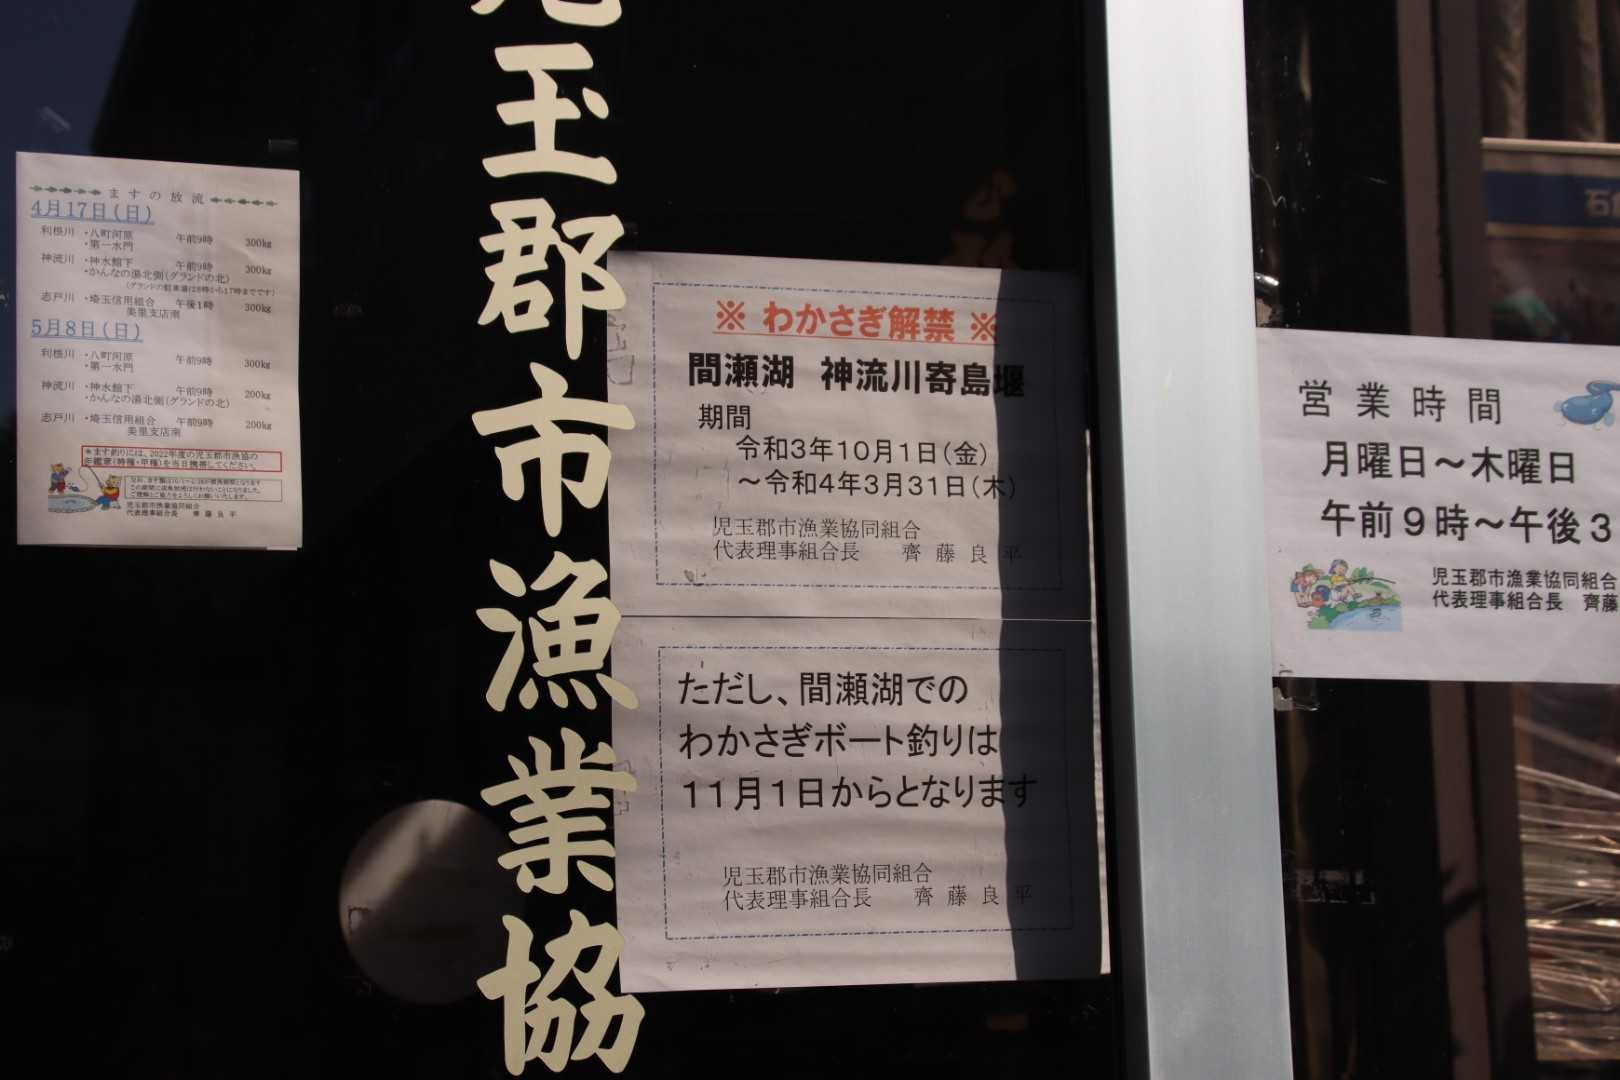 ますの放流
4月17日(日)
利根川 ・八町河原 午前9時 300kg
・第一水門
神流川 ・神水館下 午前9時 300kg
・かんなの湯北側(グランドの北)
(グランドの駐車場は8時から17時までです)
志戸川 ・埼玉信用組合 午後1時 300kg
美里支店南
5月8日(日)
利根川 ・八町河原 午前9時 300kg
・第一水門
神流川 ・神水館下 午前9時 200kg
・かんなの湯北側(グランドの北)
志戸川 ・埼玉信用組合 午前9時 200kg
美里支店南
＊ます釣りには、2022年度の児玉郡市漁協の
年鑑章(特種・甲種)を当日携帯してください。
ご理解とご協力をよろしくお願いいたします。
児玉郡市漁業協同組合
代表理事組合長 齊藤良平
玉郡市漁業協
※ わかさぎ解禁 ※
間瀬湖 神流川寄島堰
期間
令和3年10月1日(金)
～令和4年3月31日(木)
児玉郡市漁業協同組合
代表理事組合長 齊藤良平
ただし、間瀬湖での
わかさぎボート釣りは
11月1日からとなります
児玉郡市漁業協同組合
代表理事組合長 齊藤良平
営業時間
月曜日～木曜日
午前9時～午後3
児玉郡市漁業協同組合
代表理事組合長 齊藤